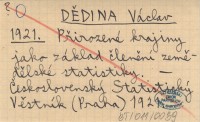 DĚDINA Václav
1921. Přirozené krajiny
jako základ členění země-
dělské statistiky. —
Československý Statistický
Věstník (Praha) 192